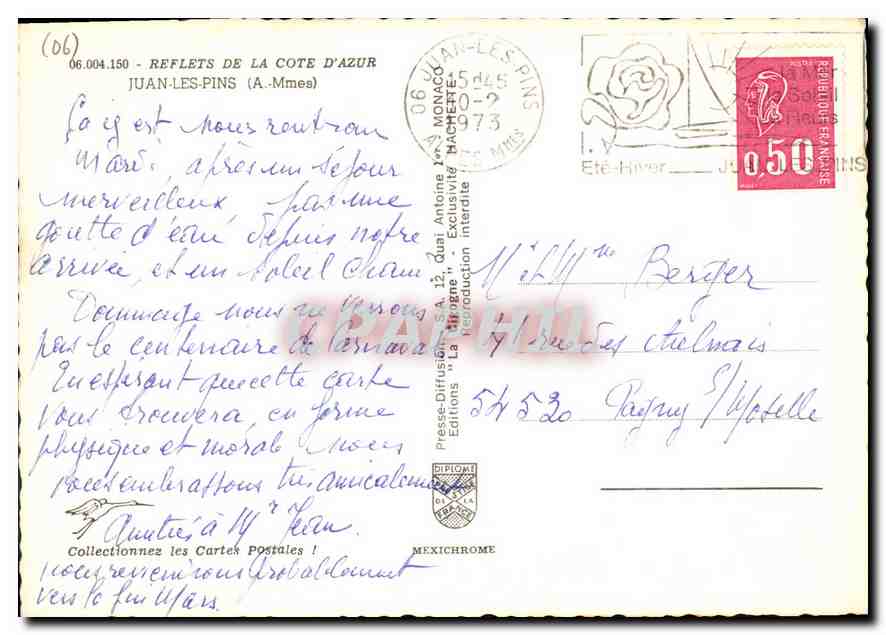 (06)
06.004.150 - REFLETS DE LA COTE D'AZUR
JUAN-LES-PINS (A.-Mmes)
Ça y est nous rentron
Mardi, après un séjour
merveilleux pas une
goutte d'eau depuis notre
arrivée, et un soleil chau
Dommage nous ne verrons
pas le centenaire de Carnaval
En espérant que cette carte
vous trouvera en forme
physique et morale nous
vous embrassons très amicalement
Amitiés à Mr Jean.
Collectionnez les Cartes Postales !
nous reviendrons probablement
vers la fin Mars.
Presse-Diffusion, S.A. 12, Quai Antoine 1er MONACO
Editions "La Cigogne" - Exclusivité HACHETTE
Reproduction interdite
DIPLOME
DE LA
FRANCE
MEXICHROME
06 JUAN-LES-PINS
15h45
10-2
1973
ALPES Mmes
la Mer
le Soleil
Eté-Hiver
JUAN-LES-PINS
REPUBLIQUE FRANÇAISE
0,50
Mr et Mme Berger
rue des Aulnais
54530 Pagny s/Moselle
CPAPHIL